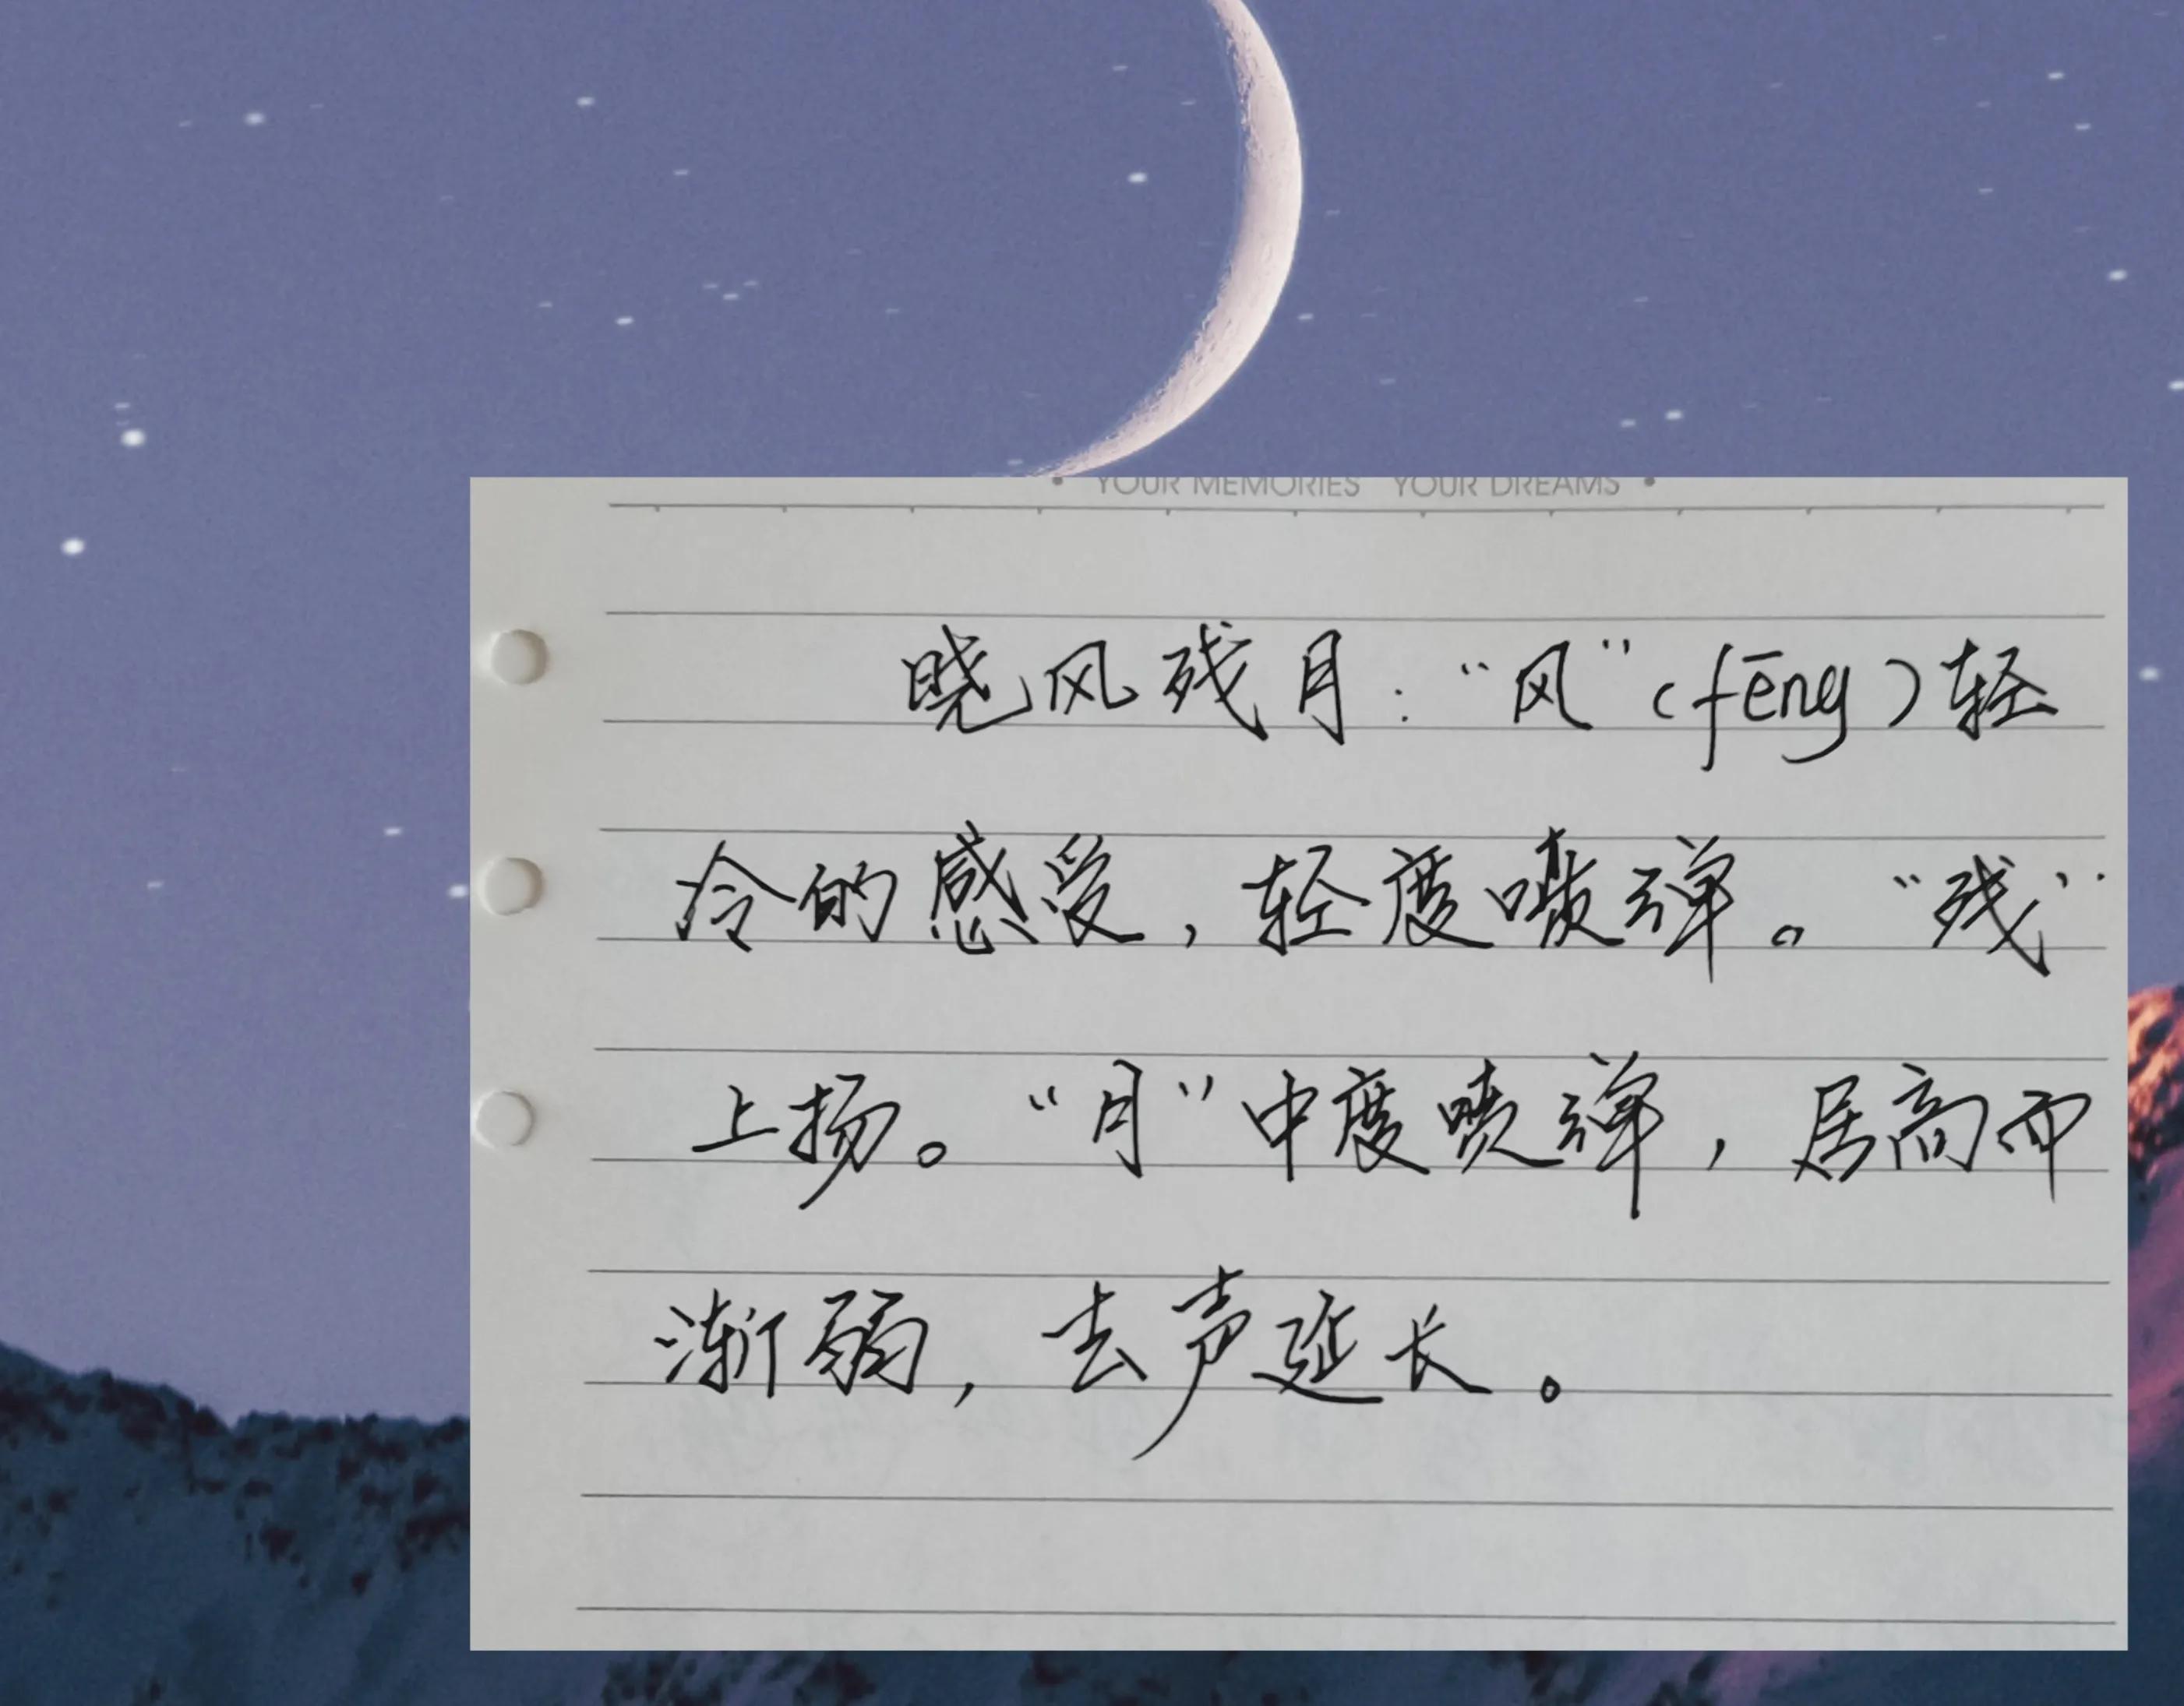 YOUR MEMORIES YOUR DREAMS
晓风残月:“风”(fēng)轻
冷的感受,轻度喷弹。“残”
上扬。“月”中度喷弹,居高而
渐弱,去声延长。